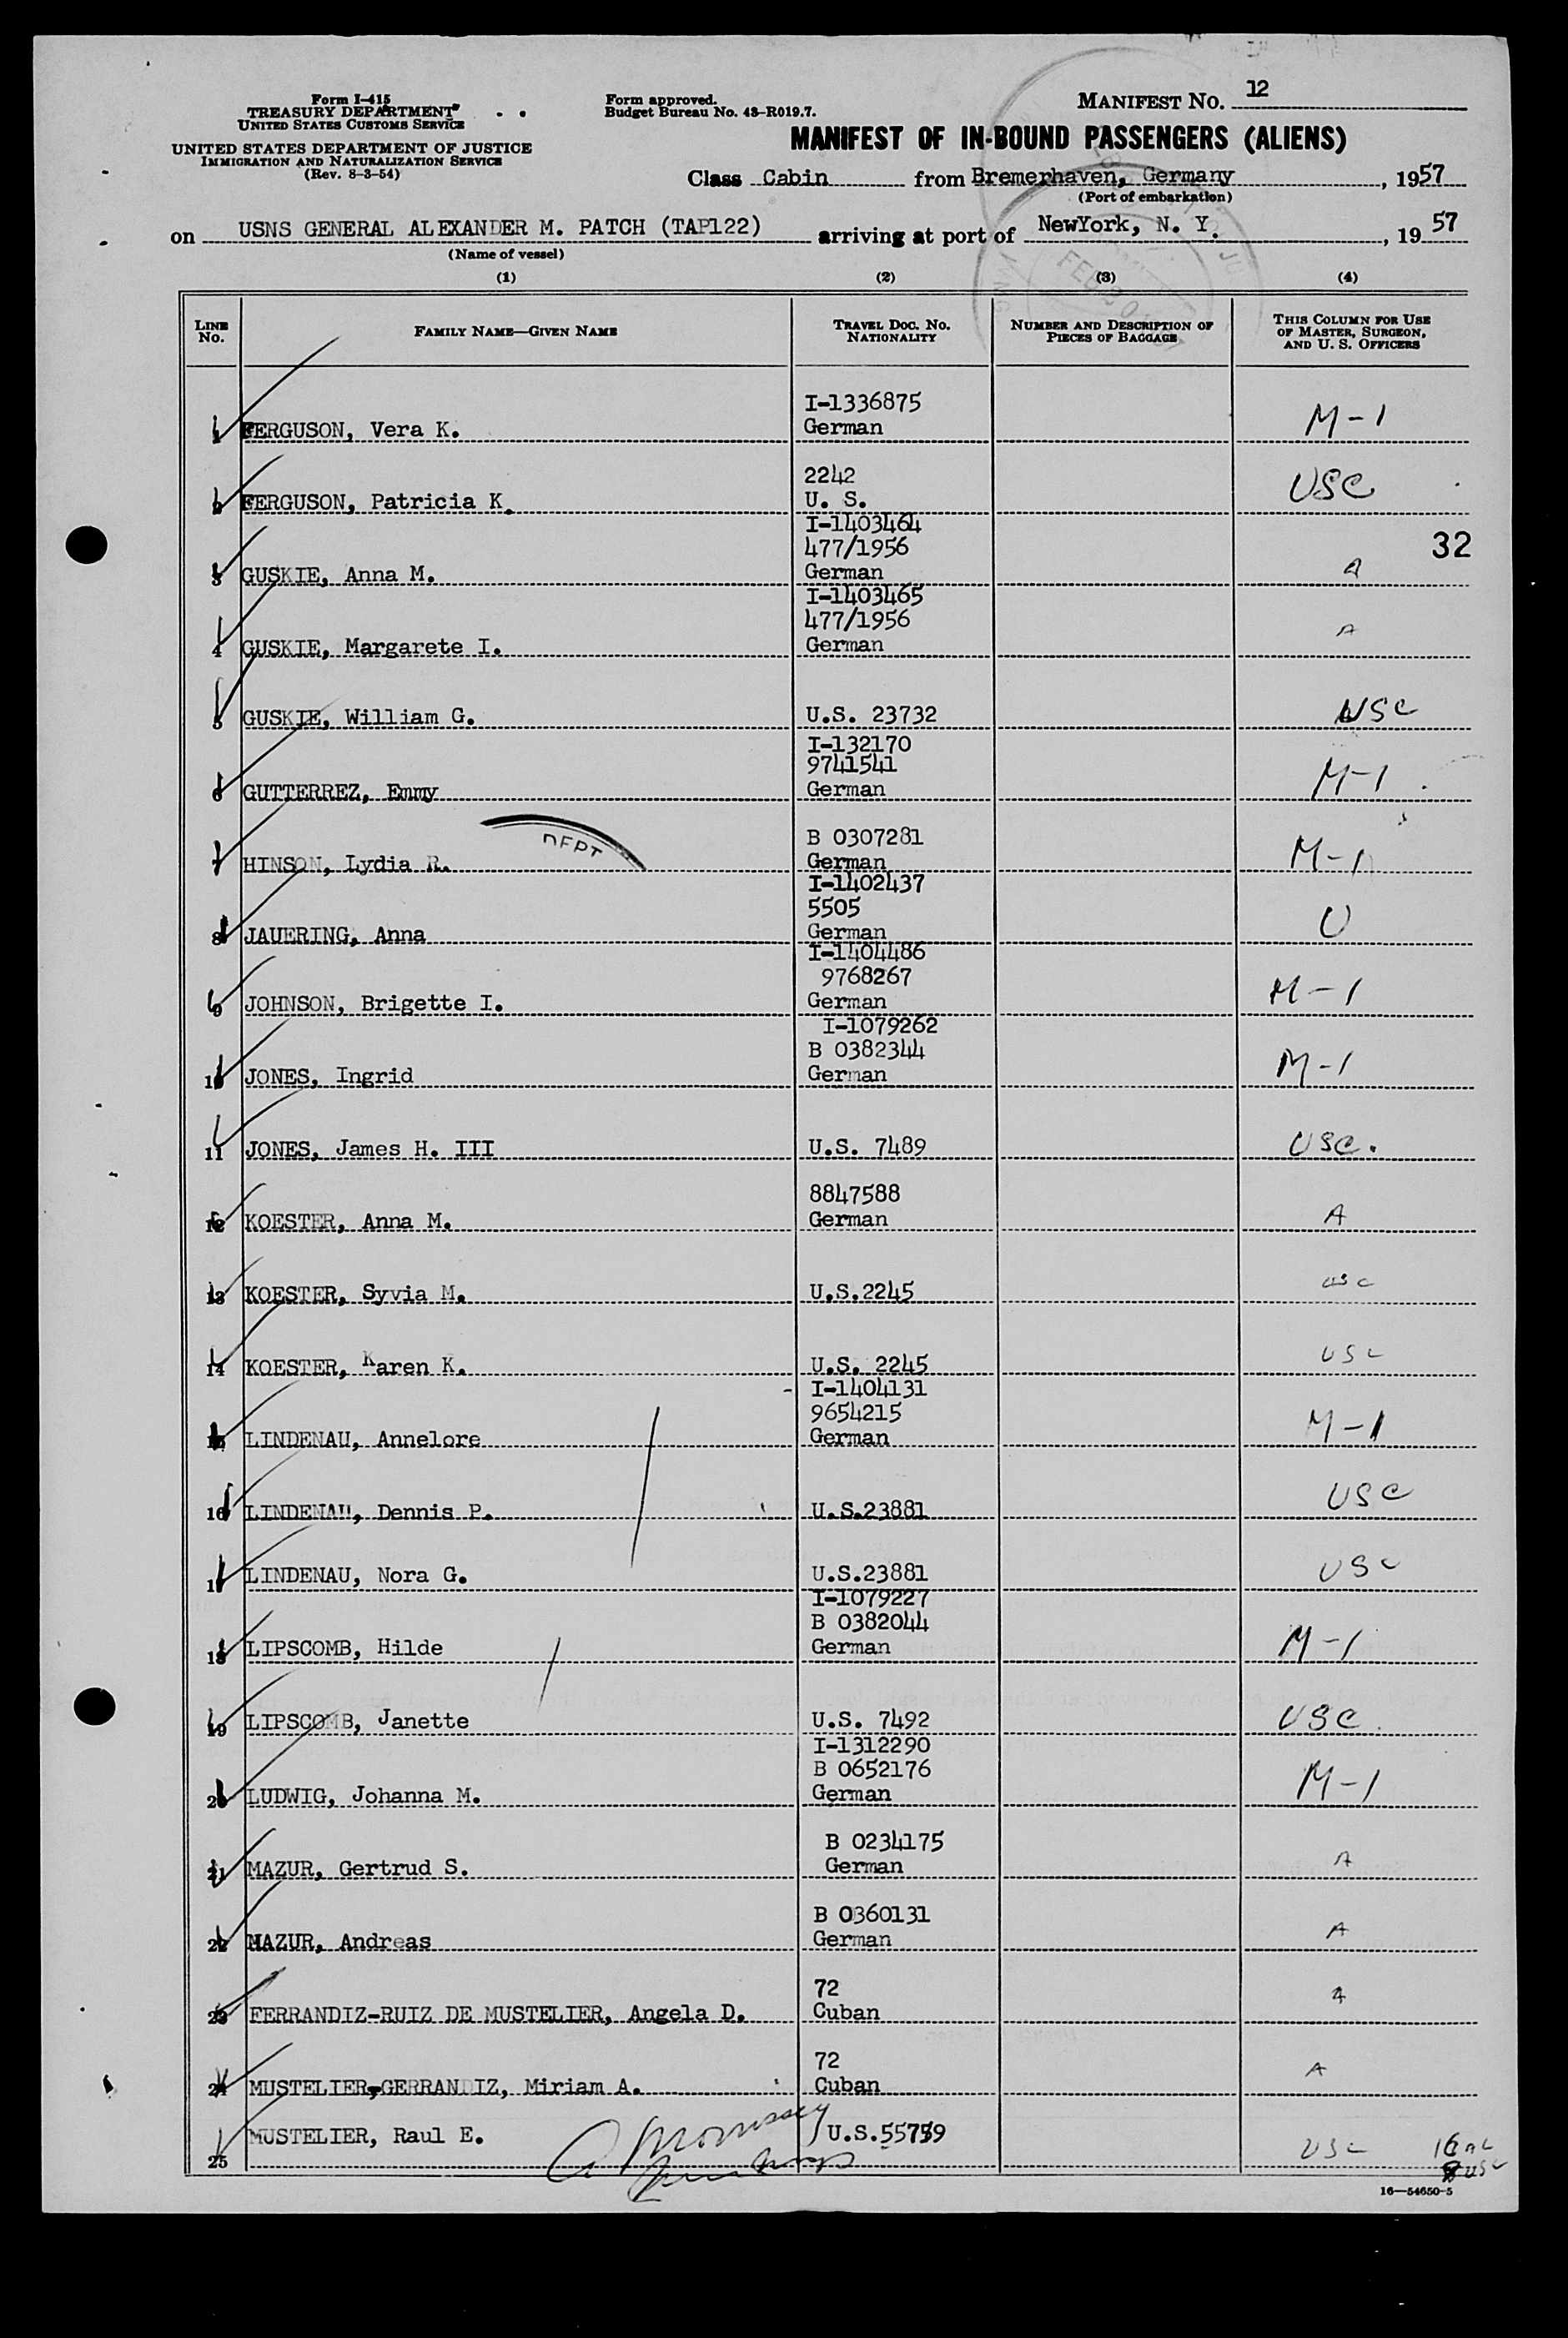 Form I-415
TREASURY DEPARTMENT
UNITED STATES CUSTOMS SERVICE
UNITED STATES DEPARTMENT OF JUSTICE
IMMIGRATION AND NATURALIZATION SERVICE
(Rev. 8-3-54)
Form approved.
Budget Bureau No. 43-R019.7.
MANIFEST NO. 12
MANIFEST OF IN-BOUND PASSENGERS (ALIENS)
Class Cabin from Bremerhaven, Germany, 1957
(Port of embarkation)
on USNS GENERAL ALEXANDER M. PATCH (TAP122) arriving at port of NewYork, N. Y., 19 57
(Name of vessel)
(1) (2) (3) (4)
LINE NO. FAMILY NAME—GIVEN NAME TRAVEL DOC. NO. NATIONALITY NUMBER AND DESCRIPTION OF PIECES OF BAGGAGE THIS COLUMN FOR USE OF MASTER, SURGEON, AND U. S. OFFICERS
I-1336875
1 FERGUSON, Vera K. German M-1
2242
2 FERGUSON, Patricia K. U. S. USC
I-1403464
477/1956 32
3 GUSKIE, Anna M. German A
I-1403465
477/1956
4 GUSKIE, Margarete I. German A
5 GUSKIE, William G. U.S. 23732 USC
I-132170
9741541
6 GUTTERREZ, Emmy German M-1
DEPT
B 0307281
7 HINSON, Lydia R. German M-1
I-1402437
5505
8 JAUERING, Anna German U
I-1404486
9768267
9 JOHNSON, Brigette I. German M-1
I-1079262
B 0382344
10 JONES, Ingrid German M-1
11 JONES, James H. III U.S. 7489 USC.
8847588
12 KOESTER, Anna M. German A
13 KOESTER, Syvia M. U.S.2245 USC
14 KOESTER, Karen K. U.S. 2245 USC
I-1404131
9654215
15 LINDENAU, Annelore German M-1
16 LINDENAU, Dennis P. U.S.23881 USC
17 LINDENAU, Nora G. U.S.23881 USC
I-1079227
B 0382044
18 LIPSCOMB, Hilde German M-1
19 LIPSCOMB, Janette U.S. 7492 USC
I-1312290
B 0652176
20 LUDWIG, Johanna M. German M-1
B 0234175
21 MAZUR, Gertrud S. German A
B 0360131
22 MAZUR, Andreas German A
72
23 FERRANDIZ-RUIZ DE MUSTELIER, Angela D. Cuban A
72
24 MUSTELIER-GERRANDIZ, Miriam A. Cuban A
25 MUSTELIER, Raul E. U.S.55759 USC
16—54650-5